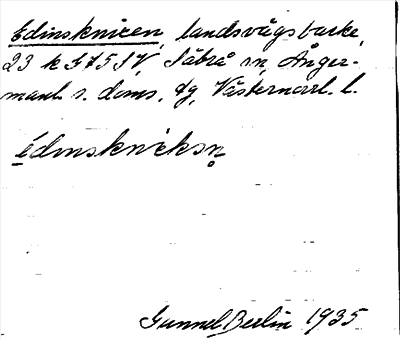 Edinsknicen, landsvägsbacke,
23 k G 75 SV, Säbrå sn, Ånger-
manl. s. doms. dg, Västernorrl. l.
édinsknìksn̥
Gunnel Berlin 1935